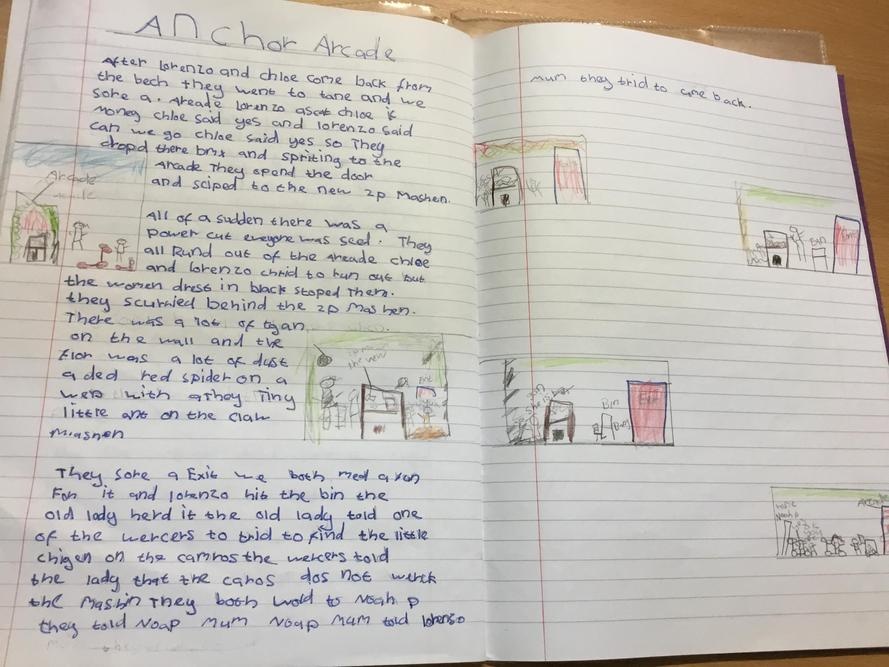 Anchor Arcade
After Lorenzo and chloe come back from
the bech they went to tane and we
sore a. Arcade Lorenzo ascat chloe if
money chloe said yes and lorenzo said
can we go chloe said yes so They
dropd there brix and spriting to the
Arcade They opend the door
and sciped to the new 2p Mashen.
Arcade
All of a sudden there was a
Power cut everyone was seed. They
all Rund out of the Arcade chloe
and lorenzo chrid to run out but
the women drest in black stoped Them.
they scurried behind the 2p Mashen.
There was a lot of
on the wall and the
flor was a lot of dust
a ded red spider on a
web with a They Tiny
little ant on the Claw
Miashen
the new
They sore a Exit we both med a run
For it and lorenzo hit the bin the
old lady herd it the old lady told one
of the wercers to trid to find the little
chigen on the camros the wercers told
the lady that the caros dos not werck
the Mashin They both wold to Noah p
they told Noap Mum Noap Mum told lorenso
Mum they trid to cme back.
Bin
Bin
Exit
Arcade